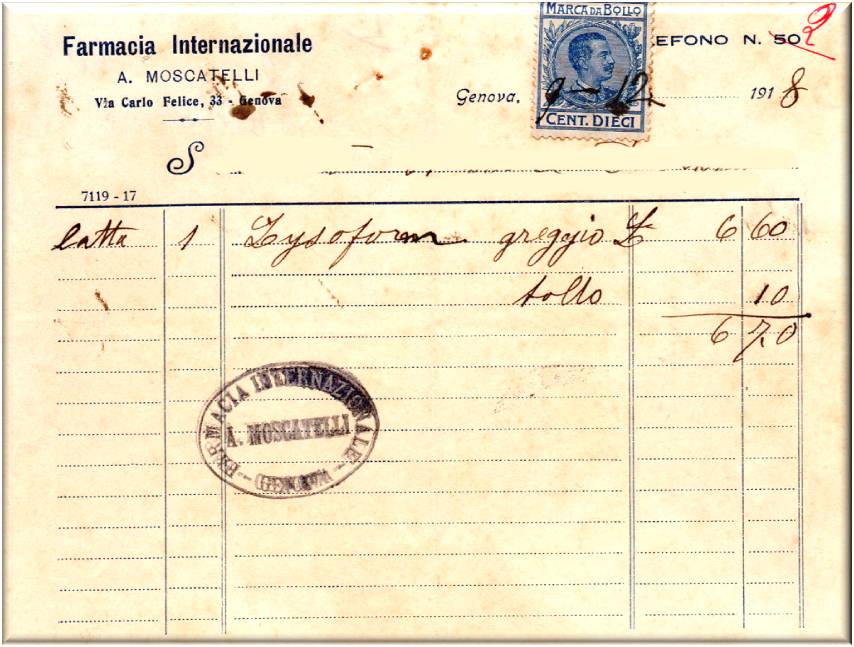 MARCA DA BOLLO
Farmacia Internazionale
EFONO N. 50 2
A. MOSCATELLI
Via Carlo Felice, 33 - Genova
Genova, 9 - 12 1918
CENT. DIECI
S
7119 - 17
latta 1 Lysoform greggio L. 6 60
bollo 10
6 70
FARMACIA INTERNAZIONALE
A. MOSCATELLI
GENOVA